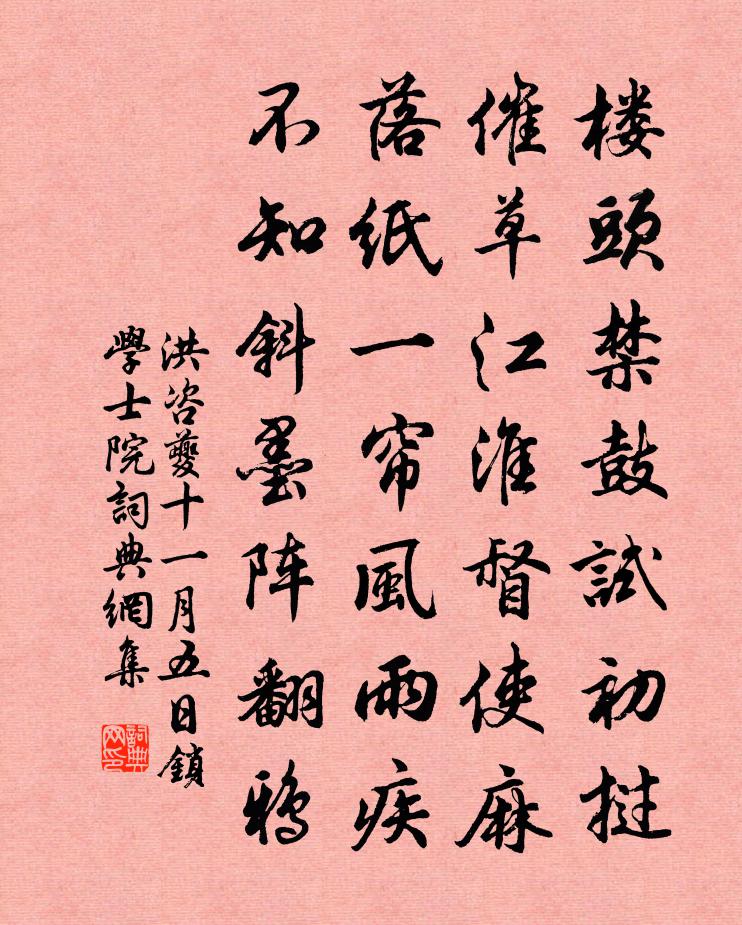 楼頭禁鼓試初撾
催草江淮督使麻
落紙一帘風雨疾
不知斜墨阵翻鴉
洪咨夔十一月五日鎖
學士院詞典網集
詞典网印